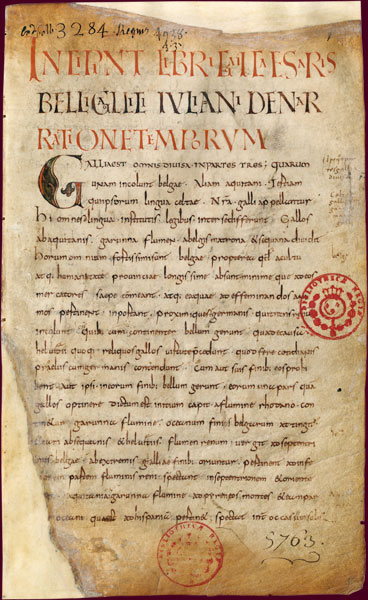 3284
INCIPIUNT LIBRI GAII CAESARIS
BELLI GALLICI IULIANI DE NAR
RATIONE TEMPORUM
GALLIA EST OMNIS DIVISA IN PARTES TRES quarum
unam incolunt belgae Aliam aquitani Tertiam
qui ipsorum lingua celtae Nra galli appellantur
Hi omnes lingua institutis legibus inter se differunt Gallos
ab aquitanis garunna flumen a belgis matrona & sequana dividit
Horum omnium fortissimi sunt belgae propterea qđ a cultu
atq humanitate provinciae longissime absunt minime que ad eos
mercatores saepe comeant atq ea quae ad effeminandos animos
pertinent inportant proximique s germanis qui trans
incolunt Quibus cum continenter bellum gerunt qua de causa
helvetii quoq reliquos gallos virtute praecedunt quod fere cotidianis
proeliis cum germanis contendunt Cum aut suis finibus eos prohi
bent aut ipsi in eorum finibus bellum gerunt eorum una pars qua
gallos optinere dictum est initium capit a flumine rhodano con
garunna flumine oceano finibus belgarum
ab sequanis & helvetiis flumen renum vergit ad septentriones
belgae ab extremis galliae finibus oriuntur pertinent ad inferiorem
partem fluminis reni spectant in septentrionem & orientem
garunna flumine ad pyrenaeos montes & eam partem
oceani quae ad hispaniam pertinet spectat int occasum solis
5763
BIBLIOTHECA REGIA
BIBLIOTHECA REGIA